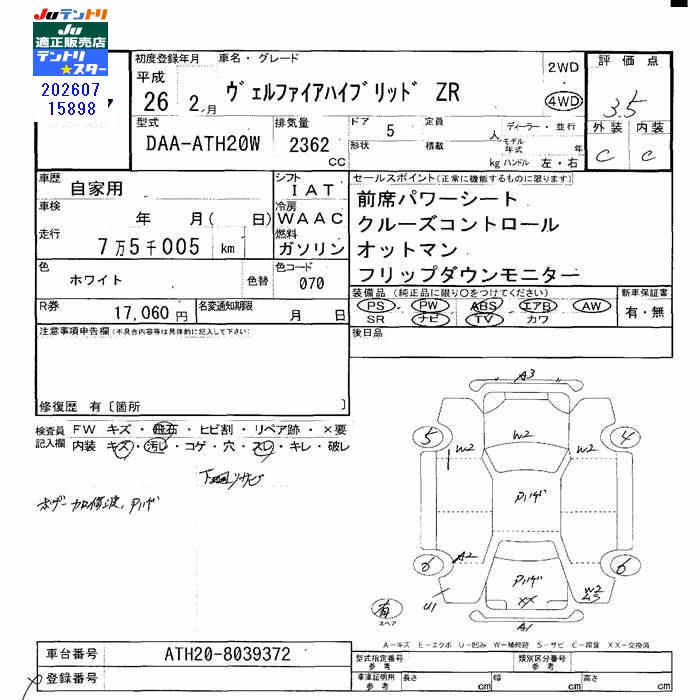 Juテントリ
JU
適正販売店
テントリ
★スター
202607
15898
初度登録年月
車名・グレード
平成
26 2月
ヴェルファイアハイブリッド ZR
2WD
4WD
評価点
3.5
外装 内装
C C
型式
DAA-ATH20W
排気量
2362
CC
ドア 5
定員 人
形状
積載 kg
ディーラー・並行
モデル年式 年
ハンドル 左・右
車歴
自家用
シフト
IAT
車検
年 月( 日)
冷房
WAAC
走行
7万5千005 km
燃料
ガソリン
色
ホワイト
色替
色コード
070
R券
17,060円
名変通知期限
月 日
セールスポイント(正常に機能するものに限ります)
前席パワーシート
クルーズコントロール
オットマン
フリップダウンモニター
装備品(純正品に限り○をつけてください)
PS PW ABS エアB AW
SR ナビ TV カワ
新車保証書
有・無
後日品
注意事項申告欄(不具合内容等は具体的に記入して下さい)
修復歴 有〔箇所 〕
検査員 FW キズ・飛石・ヒビ割・リペア跡・×要
記入欄 内装 キズ・汚レ・コゲ・穴・スレ・キレ・破レ
下回リサビ
A3
5
W2
W2
4
A2
W2
XX
6
6
U1
A1
有
スペア
A-キズ E-エクボ U-凹み W-補修跡 S-サビ C-腐食 XX-交換済
車台番号
ATH20-8039372
登録番号
型式指定番号
参考
類別区分番号
参考
車庫証明用
参考
長さ cm
幅 cm
高さ cm